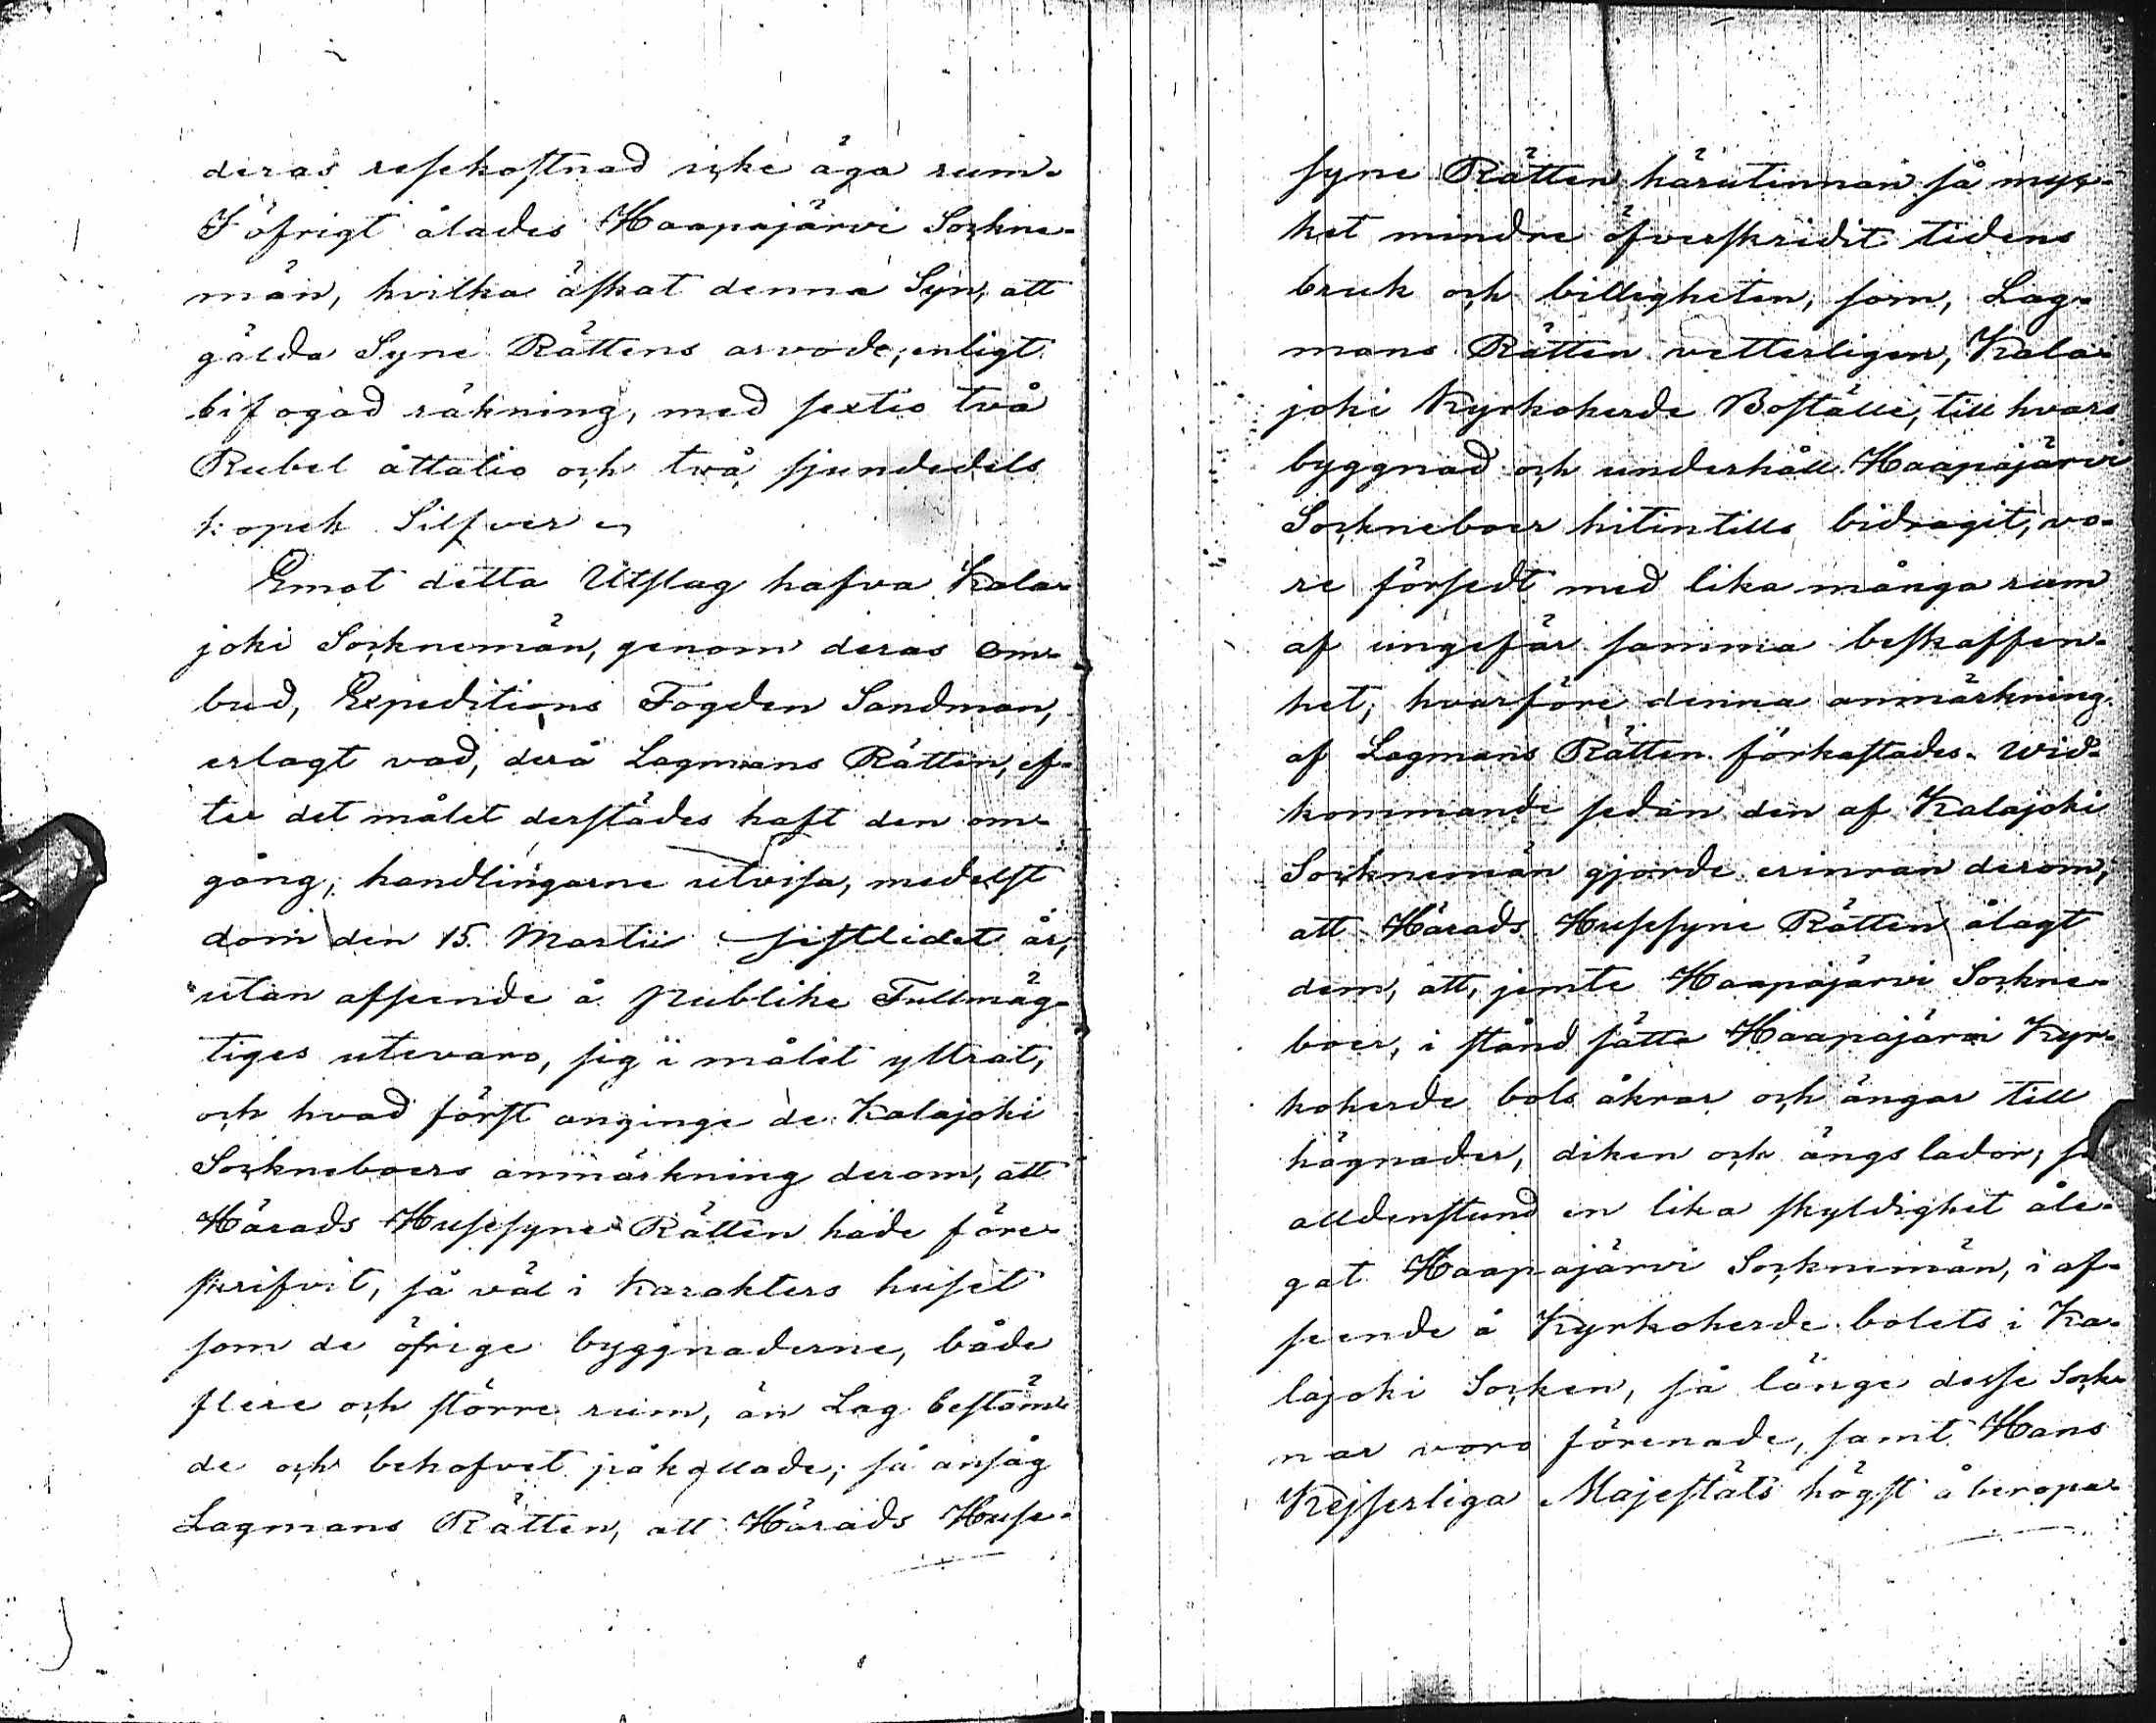 deras resekostnad icke äga rum.
I öfrigt ålades Haapajärvi Sockne-
män, hvilka äskat denna Syn, att
gälda Syne Rättens arvode, enligt
bifogad räkning, med sextio två
Rubel åttatio och två sjundedels
kopek Silfver
Emot detta Utslag hafva Kala-
joki Socknemän, genom deras om-
bud, Expeditions Fogden Sandman,
erlagt vad, derå Lagmans Rätten, ef-
ter det målet derstädes haft den om-
gång, handlingarne utvisa, medelst
dom den 15. Martii sistlidet år,
utan afseende å Publike Fullmäg-
tiges utevaro, sig i målet yttrat,
och hvad först anginge de Kalajoki
Sockneboers anmärkning derom, att
Härads Husesyne Rätten hade före-
skrifvit, så väl i Karakters huset
som de öfrige byggnaderne, både
flere och större rum, än Lag bestäm-
de och behofvet påkallade; så ansåg
Lagmans Rätten, att Härads Huse-
syne Rätten härutinnan så myc-
ket mindre öfverskridit tidens
bruk och billigheten, som, Lag-
mans Rätten vetterligen, Kala-
joki Kyrkoherde Boställe, till hvars
byggnad och underhåll Haapajärvi
Sockneboer hitintills bidragit, vo-
re försedt med lika många rum
af ungefär samma beskaffen-
het, hvarföre denna anmärkning
af Lagmans Rätten förkastades. Wid-
kommande sedan den af Kalajoki
Socknemän gjorde erinran derom,
att Härads Husesyne Rätten ålagt
dem, att, jemte Haapajärvi Sockne-
boer, i stånd sätta Haapajärvi Kyr-
koherde bols åkrar och ängar till
hägnader, diken och ängs lador; så
alldenstund en lika skyldighet åle-
gat Haapajärvi Socknemän, i af-
seende å Kyrkoherde bolets i Ka-
lajoki Socken, så länge desse Sock-
nar voro förenade, samt Hans
Kejserliga Majestäts högst åberopa-